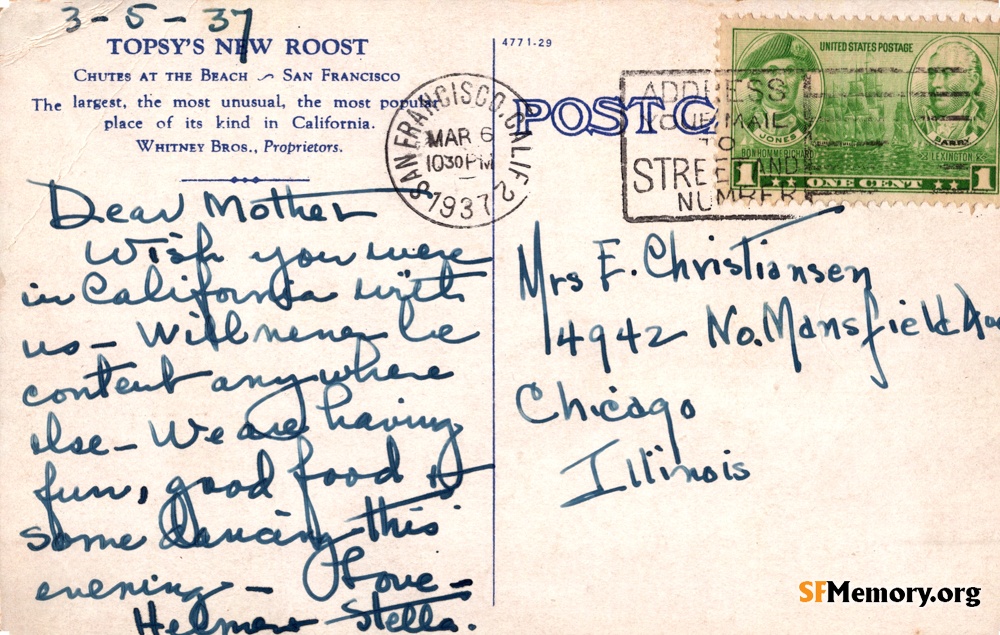 3-5-37
TOPSY'S NEW ROOST
CHUTES AT THE BEACH ~ SAN FRANCISCO
The largest, the most unusual, the most popular
place of its kind in California.
WHITNEY BROS., Proprietors.
Dear Mother
Wish you were
in California with
us — Will never be
content anywhere
else — We are having
fun, good food &
some dancing this
evening — Love —
Helmer & Stella.
4771-29
POST C
SAN FRANCISCO, CALIF. 2
MAR 6
1030 PM
1937
ADDRESS
YOUR MAIL
TO
STREET AND
NUMBER
UNITED STATES POSTAGE
JONES
BARRY
BON HOMME RICHARD
LEXINGTON
1 ONE CENT 1
Mrs E. Christiansen
4942 No. Mansfield Ave
Chicago
Illinois
SFMemory.org